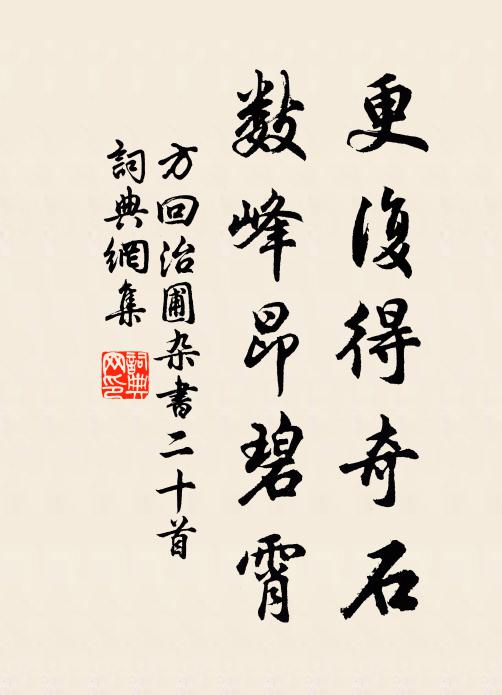 更復得奇石
數峰昂碧霄
方回治圃杂書二十首
詞典網集
詞典網印